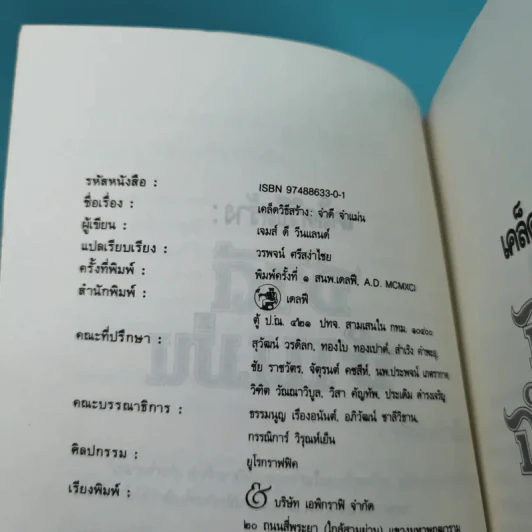 รหัสหนังสือ : ISBN 97488633-0-1
ชื่อเรื่อง : เคล็ดวิธีสร้าง: จำดี จำแม่น
ผู้เขียน : เจมส์ ดี วีนแลนด์
แปลเรียบเรียง : วรพจน์ ศรีสง่าไชย
ครั้งที่พิมพ์ : พิมพ์ครั้งที่ ๑ สนพ.เดลฟี, A.D. MCMXCI
สำนักพิมพ์ : เดลฟี
ตู้ ป.ณ. ๔๒๑ ปทจ. สามเสนใน กทม. ๑๐๔๐๐
คณะที่ปรึกษา : สุวัฒน์ วรดิลก, ทองใบ ทองเปาด์, สำเริง คำพะอุ
ชัย ราชวัตร, จัตุรนต์ คชสีห์, นพ.ประพจน์ เภตรากาศ
วิฑิต วัณนาวิบูล, วิสา คัญทัพ, ประเดิม ดำรงเจริญ
คณะบรรณาธิการ : ธรรมนูญ เรืองอนันต์, อภิวัฒน์ ชาลีวิธาน,
กรรณิการ์ วิรุณห์เย็น
ศิลปกรรม : ยูโรกราฟฟิค
เรียงพิมพ์ : บริษัท เอพิกราฟิ จำกัด
๒๐ ถนนสี่พระยา (ใกล้สามย่าน) แขวงมหาพฤฒาราม
เคล็ด